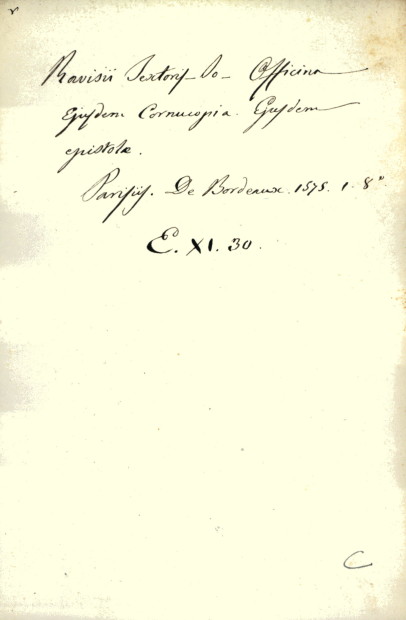 r
Ravisii Textoris Jo- Officina
Ejusdem Cornucopia. Ejusdem
epistolæ.
Parisijs. De Bordeaux. 1575. 1. 8º
E. XI. 30.
C